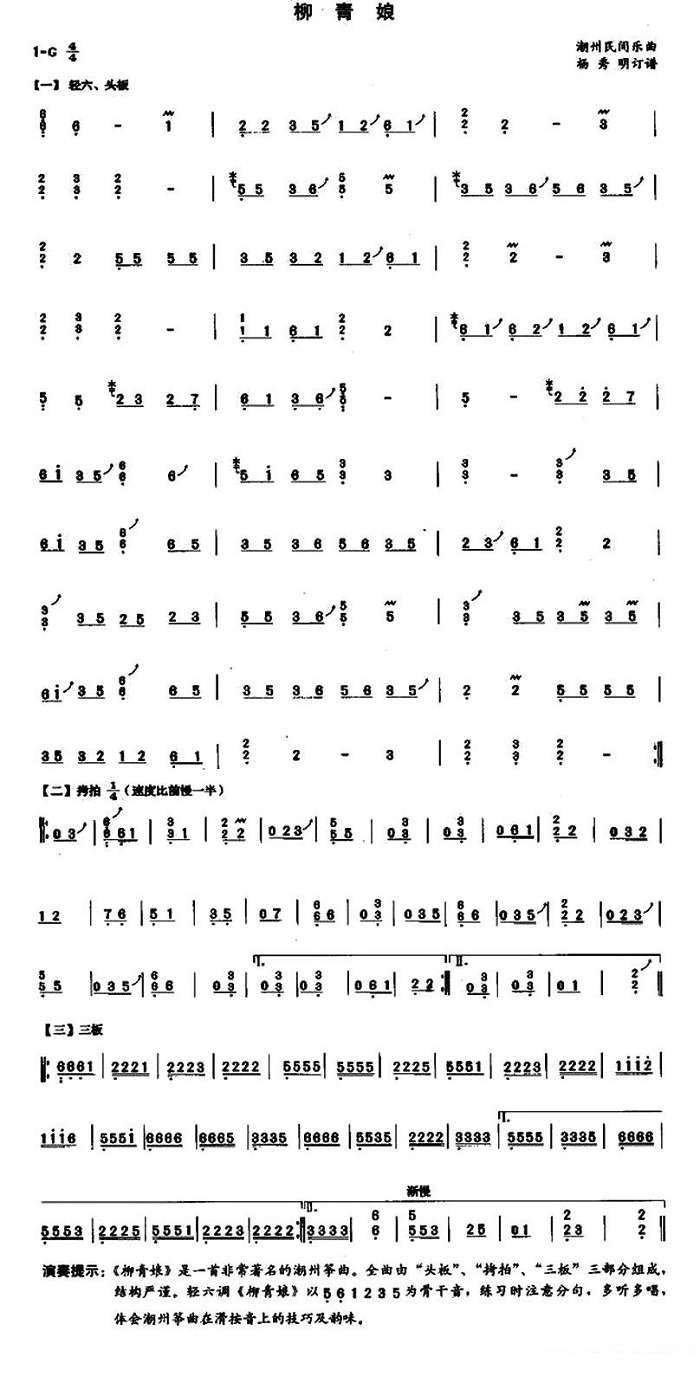 柳 青 娘
1=G 4/4
潮州民间乐曲
杨 秀 明订谱
【一】 轻六、头板
6 6 - 1 | 2 2 3 5 1 2 6 1 | 2 2 - 3
2 3 2 - | 5 5 3 6 5 5 | 3 5 3 6 5 6 3 5 |
2 2 5 5 5 5 | 3 5 3 2 1 2 6 1 | 2 2 - 3 |
2 3 2 - | 1 1 6 1 2 2 | 6 1 6 2 1 2 6 1 |
5 5 2 3 2 7 | 6 1 3 6 5 - | 5 - 2 2 2 7 |
6 i 3 5 6 6 | 5 i 6 5 3 3 | 3 - 3 3 5 |
6 i 3 5 6 6 5 | 3 5 3 6 5 6 3 5 | 2 3 6 1 2 2 |
3 3 5 2 5 2 3 | 5 5 3 6 5 5 | 3 3 5 3 5 3 5 |
6 i 3 5 6 6 5 | 3 5 3 6 5 6 3 5 | 2 2 5 5 5 5 |
3 5 3 2 1 2 6 1 | 2 2 - 3 | 2 3 2 - :||
【二】拷拍 1/4 (速度比前慢一半)
||: 0 3 | 6 6 1 | 3 1 | 2 2 | 0 2 3 | 5 5 | 0 3 | 0 3 | 0 6 1 | 2 2 | 0 3 2 |
1 2 | 7 6 | 5 1 | 3 5 | 0 7 | 6 6 | 0 3 | 0 3 5 | 6 6 | 0 3 5 | 2 2 | 0 2 3 |
5 5 | 0 3 5 | 6 6 | 0 3 | I. 0 3 | 0 3 | 0 6 1 | 2 2 :|| II. 0 3 | 0 3 | 0 1 | 2 |
【三】三板
||: 6661 | 2221 | 2223 | 2222 | 5555 | 5555 | 2225 | 5551 | 2223 | 2222 | 1ii2 |
1ii6 | 555i | 6666 | 6665 | 3335 | 6666 | 5535 | 2222 | 3333 | I. 5555 | 3335 | 6666 |
渐慢
5553 | 2225 | 5551 | 2223 | 2222 :|| II. 3333 | 6 | 553 | 25 | 01 | 23 | 2 ||
演奏提示:《柳青娘》是一首非常著名的潮州筝曲。全曲由“头板”、“拷拍”、“三板”三部分组成,
结构严谨。轻六调《柳青娘》以5 6 1 2 3 5 为骨干音,练习时注意分句,多听多唱,
体会潮州筝曲在滑按音上的技巧及韵味。